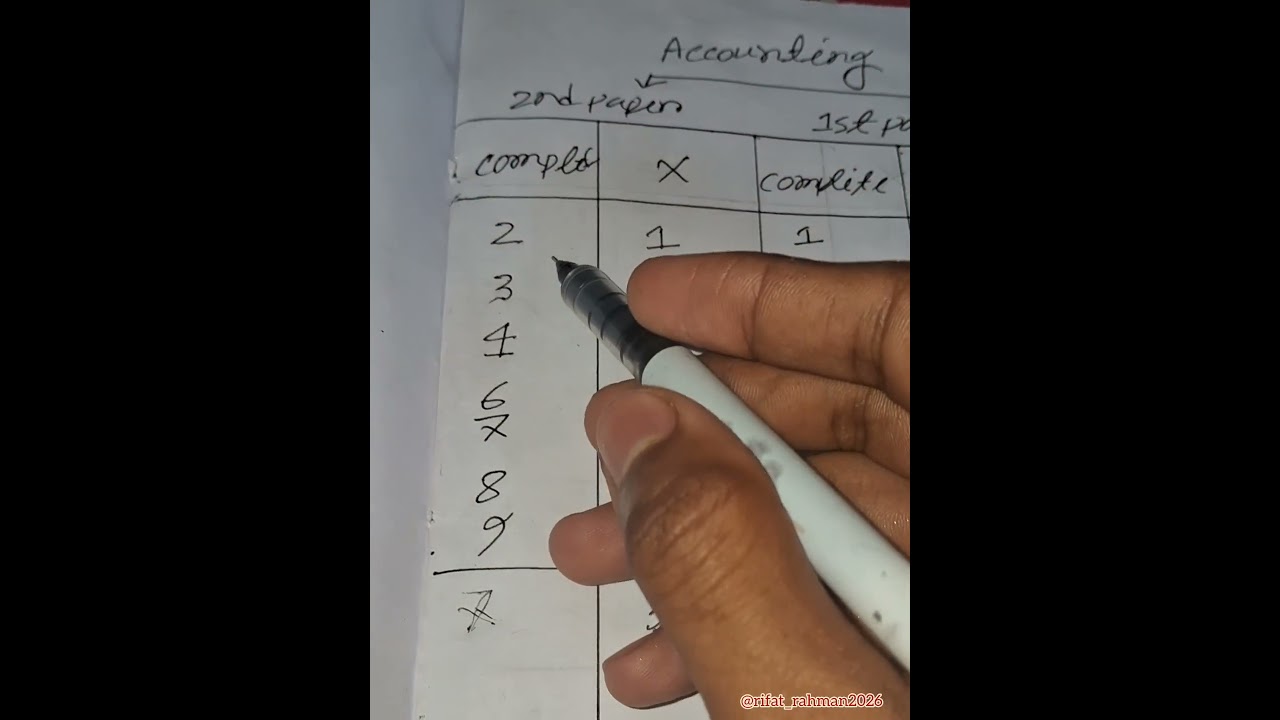 Accounting
2nd paper 1st pa
complet X complite
2 1 1
3
4
6
7
8
9
7
@rifat_rahman2026